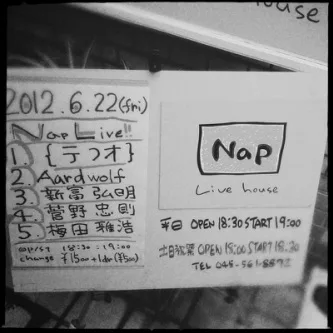 house
2012.6.22(fri)
Nap Live!!
1. {テフオ}
2. Aardwolf
3. 新富 弘明
4. 菅野 忠則
5. 梅田 雅浩
op/st 18:30 : 19:00
charge ¥1500+1dr(¥500)
Nap
Live house
平日 OPEN 18:30 START 19:00
土日祝祭 OPEN 18:00 START 18:30
TEL 048-561-8892